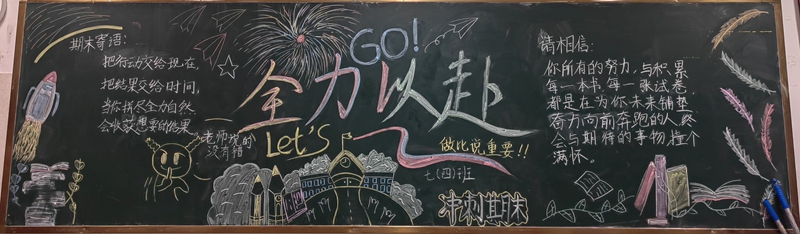 期末寄语:
把行动交给现在,
把结果交给时间,
当你拼尽全力自然
会收获想要的结果
老师说的
没有错
GO!
全力以赴
Let's
做比说重要!!
七(四)班
冲刺期末
请相信:
你所有的努力,与积累
每一本书,每一张试卷,
都是在为你未来铺垫
奋力向前奔跑的人,终
会与期待的事物,撞个
满怀。